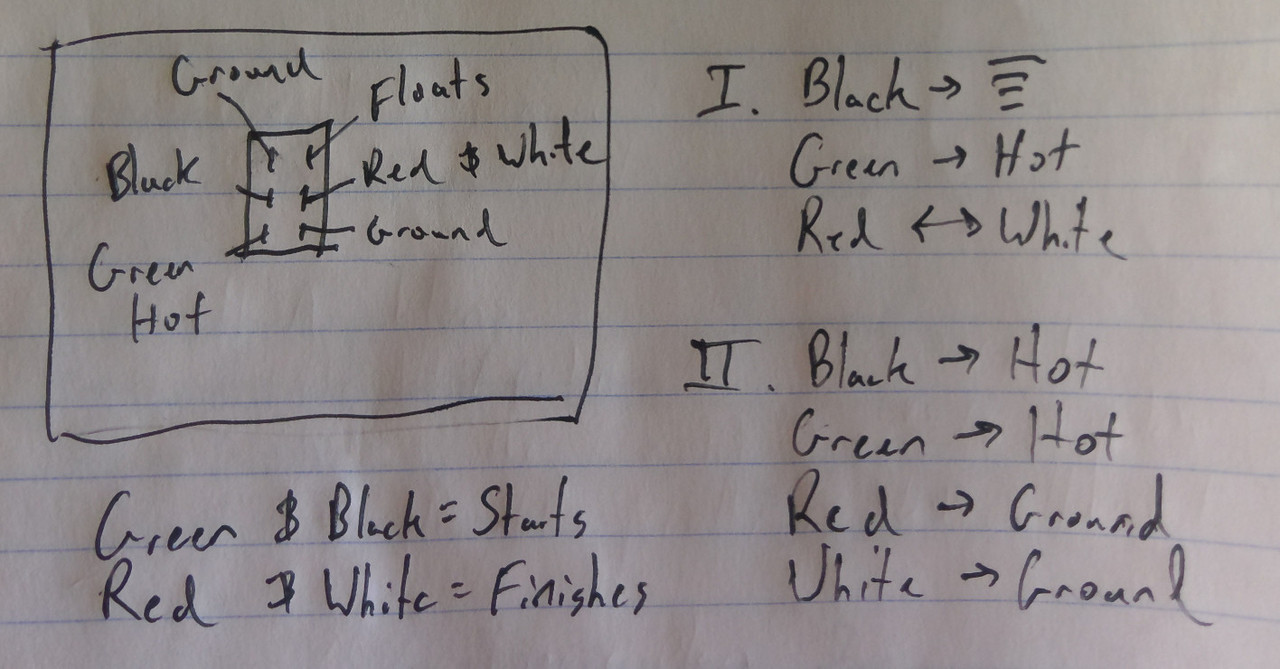 Ground
Floats
Black
Red & White
Ground
Green
Hot
Green & Black = Starts
Red & White = Finishes
I. Black →
Green → Hot
Red ↔ White
II. Black → Hot
Green → Hot
Red → Ground
White → Ground